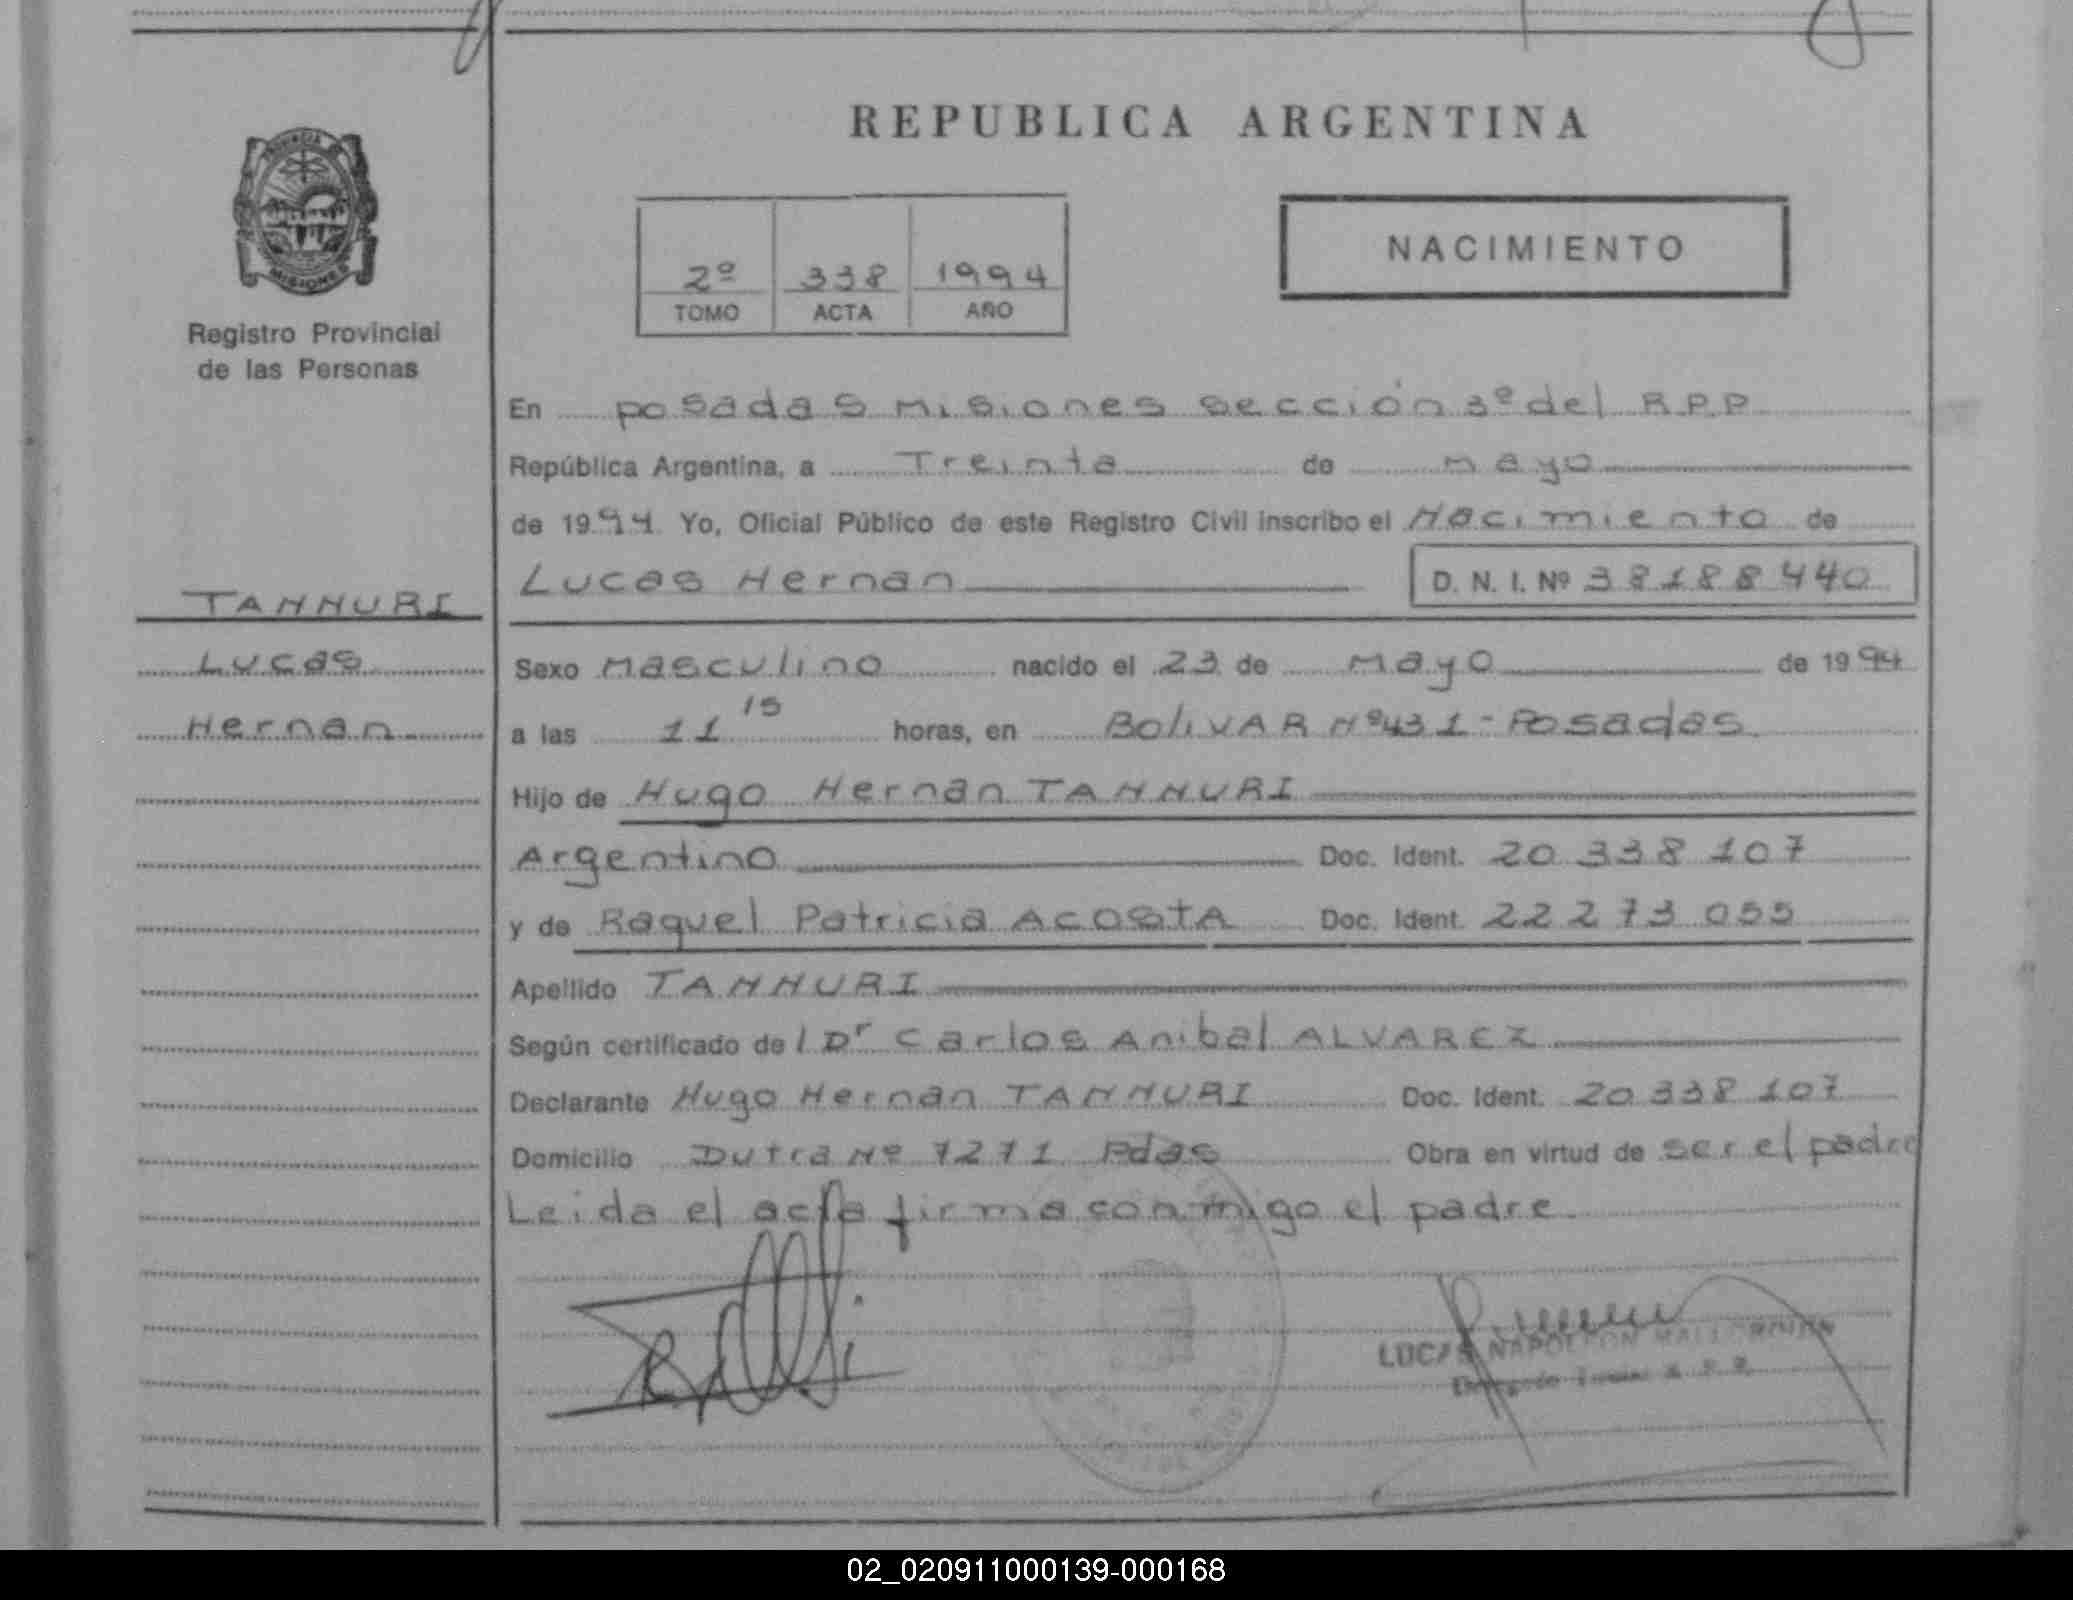 REPUBLICA ARGENTINA
PROVINCIA DE
MISIONES
Registro Provincial
de las Personas
2º 338 1994
TOMO ACTA AÑO
NACIMIENTO
En posadas Misiones sección 3º del R.P.P
República Argentina, a Treinta de mayo
de 1994 Yo, Oficial Público de este Registro Civil inscribo el Nacimiento de
Lucas Hernan D. N. I. Nº 38188440
TANNURI
Lucas
Hernan
Sexo Masculino nacido el 23 de Mayo de 1994
a las 11 15 horas, en BOLIVAR Nº431 - Posadas
Hijo de Hugo Hernan TANNURI
Argentino Doc. Ident. 20 338 107
y de Raquel Patricia ACOSTA Doc. Ident. 22 273 055
Apellido TANNURI
Según certificado de l Dr Carlos Anibal ALVAREZ
Declarante Hugo Hernan TANNURI Doc. Ident. 20 338 107
Domicilio Dutra Nº 7271 Pdas Obra en virtud de ser el padre
Leida el acta firma conmigo el padre
LUCAS NAPOLEON
02_020911000139-000168